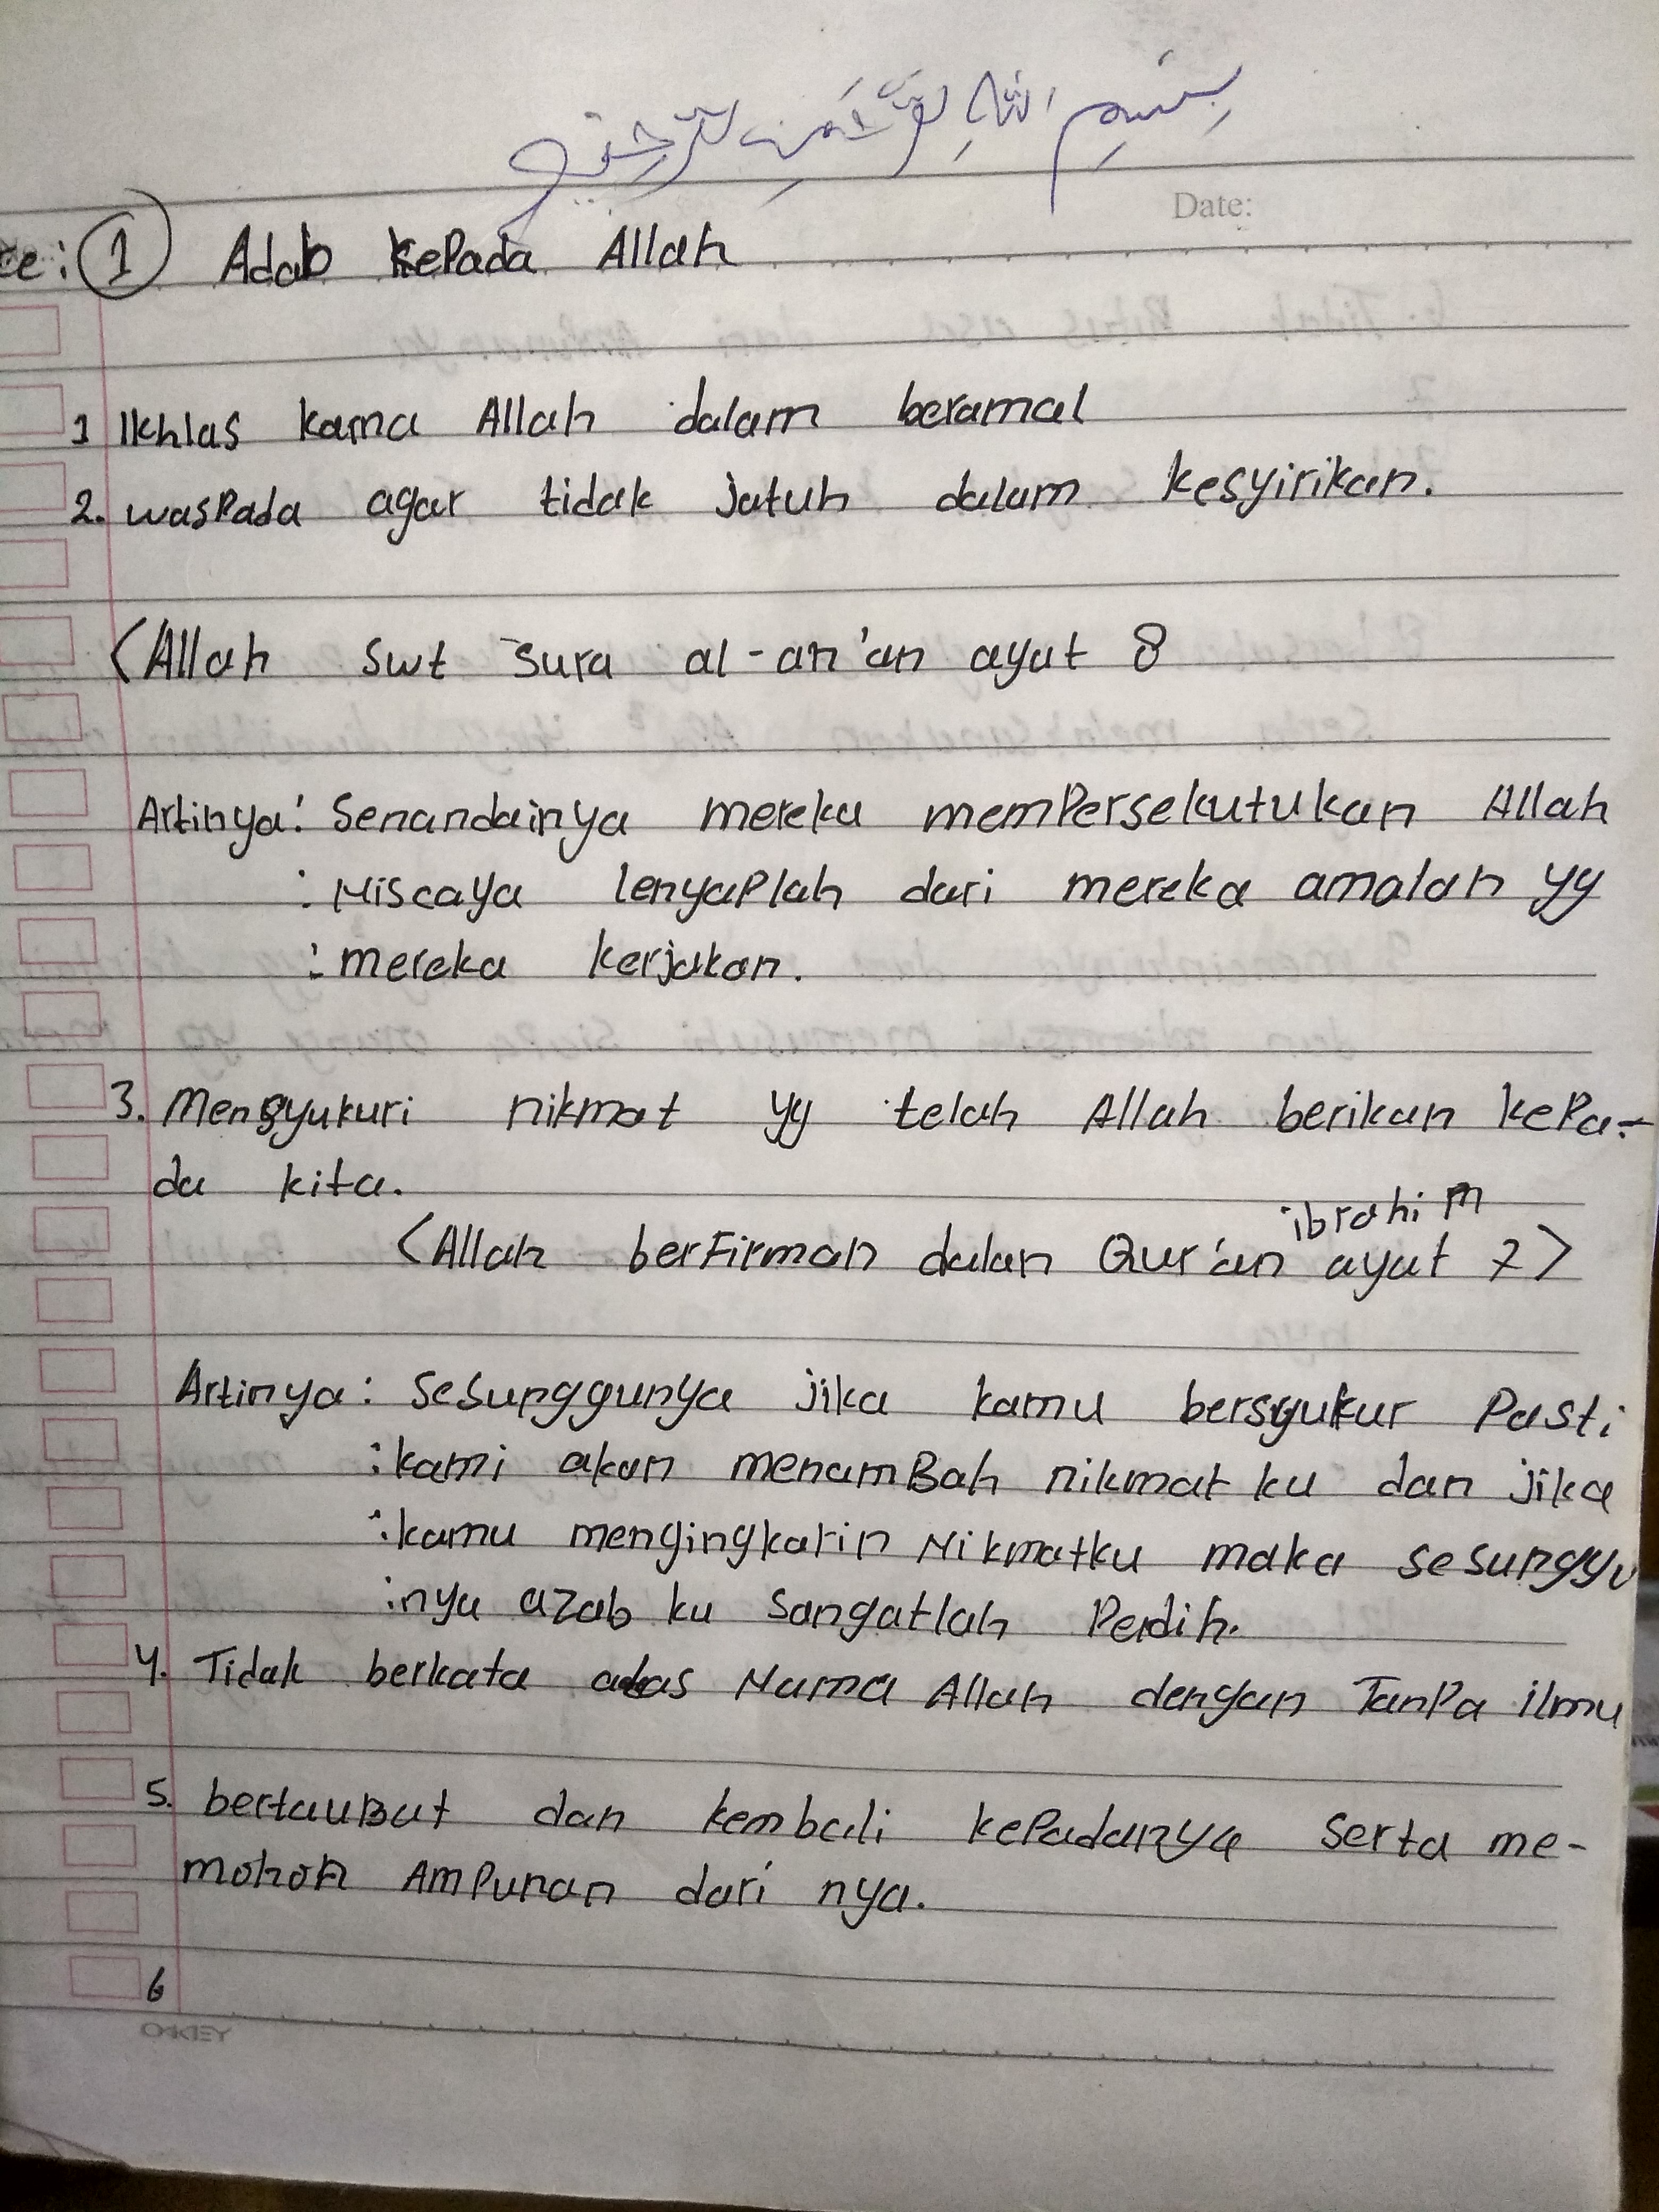 بِسْمِ اللهِ الرَّحْمَنِ الرَّحِيْمِ
Date:
te: 1 Adab kepada Allah
1 Ikhlas karna Allah dalam beramal
2. waspada agar tidak jatuh dalam kesyirikan.
(Allah swt sura al-an'an ayat 8
Artinya: Senandainya mereka mempersekutukan Allah
: Niscaya lenyaplah dari mereka amalan yg
: mereka kerjakan.
3. Mensyukuri nikmat yg telah Allah berikan kepa-
da kita.
ibrahim
<Allah berfirman dalan Qur'an ayat 7>
Artinya: Sesunggunya jika kamu bersyukur Pasti
: kami akan menamBah nikmat ku dan jika
: kamu mengingkarin Nikmatku maka sesunggu
: nya azab ku Sangatlah Perdih.
4. Tidak berkata atas Nama Allah dengan TanPa ilmu
5. bertauBat dan kembali kepadanya serta me-
mohon AmPunan dari nya.
6
OAKEY